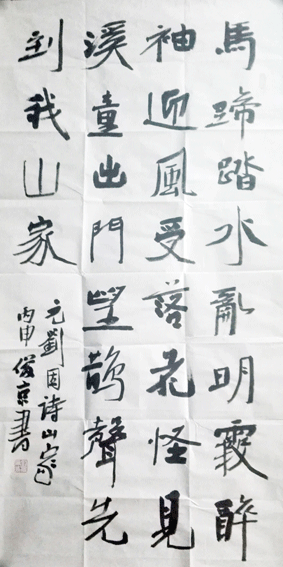 馬蹄踏水亂明霞醉
袖迎風受落花怪見
溪童出門望鵲聲先
到我山家
元劉因詩山家
丙申俊京書